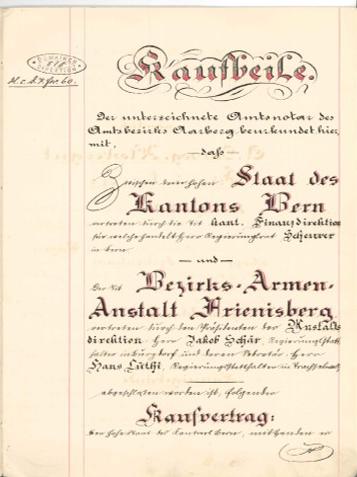 DOMAINEN
DIREKTION
Kaufbeile.
Der unterzeichnete Amtsnotar des
Amtsbezirks Aarberg beurkundet hier,
mit,
— daß —
Zwischen dem hohen Staat des
Kantons Bern
vertreten durch die Tit. kant. Finanzdirektion
für welche handelt Herr Regierungsrat Scheurer
in Bern.
— und —
Der Tit. Bezirks-Armen-
Anstalt Frienisberg
vertreten durch den Präsidenten der Anstalts
direktion Herr Jakob Schär, Regierungsstatt
halter in Burgdorf und deren Sekretär Herr
Hans Lüthi, Regierungsstatthalter in Trachselwald
abgeschlossen worden ist, folgender
Kaufvertrag:
Der hohe Staat des Kantons Bern,